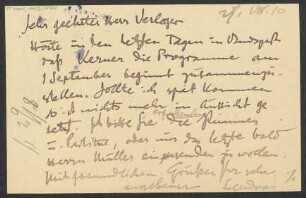 28. VIII. 10
Sehr geehrter Herr Verleger
Hörte in den letzten Tagen in Budapest
daß Kerner die Programme am
1 September beginnt zusammenzu-
stellen. Sollte ich spät kommen
so ist nichts mehr in Aussicht ge-
setzt. Ich bitte Sie die Stimmen
u. Partitur, oder nur das letzte bald
Herrn Müller einzusenden zu wollen.
Mit freundlichem Grüßen Ihr sehr
ergebener